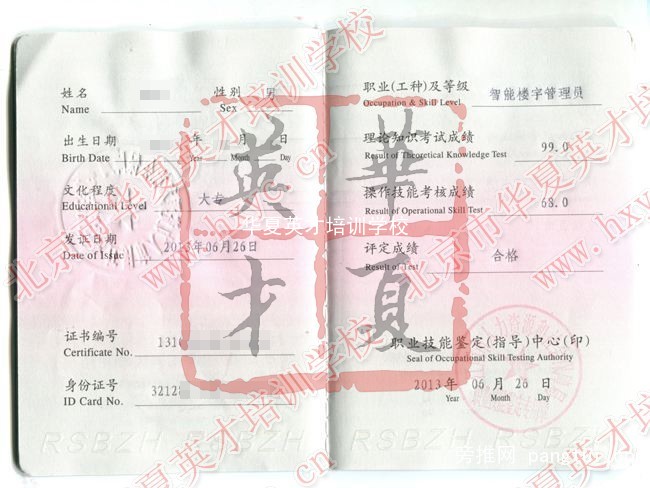 姓名 性别 男
Name Sex
出生日期 年 月 日
Birth Date Year Month Day
文化程度 大专
Educational Level
发证日期 2013年06月26日
Date of Issue
证书编号 1310
Certificate No.
身份证号 32128
ID Card No.
RSBZH RSBZH
职业(工种)及等级 智能楼宇管理员
Occupation & Skill Level
理论知识考试成绩 99.0
Result of Theoretical Knowledge Test
操作技能考核成绩 68.0
Result of Operational Skill Test
评定成绩 合格
Result of Test
职业技能鉴定(指导)中心(印)
Seal of Occupational Skill Testing Authority
2013 年 06 月 26 日
Year Month Day
RSBZH RSBZH
英 華
才 夏
华夏英才培训学校
北京市华夏英才培训学校
www.hxy
cn
旁推网